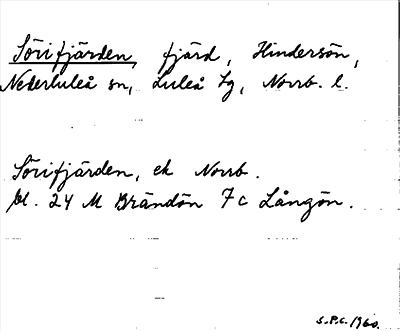 Sörifjärden, fjärd, Hindersön,
Nederluleå sn, Luleå tg, Norrb. l.
Sörifjärden, ek Norrb.
bl. 24 M Brändön 7c Långön.
S.P.C. 1960.